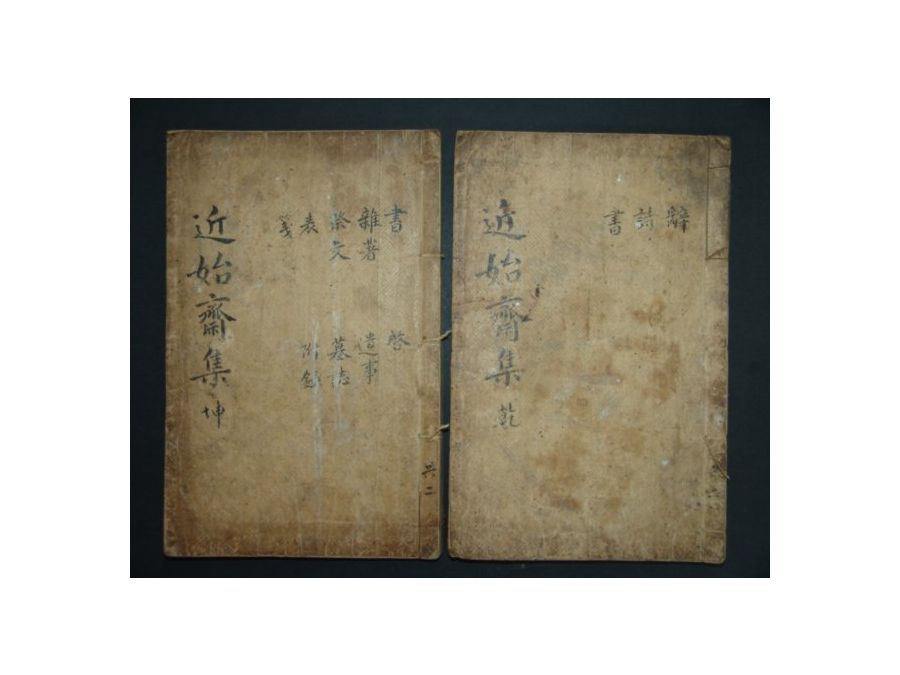 辭
詩
書
近始齋集 乾
書 啓
雜著 遺事
祭文 墓誌
表 附錄
箋
近始齋集 坤
共二